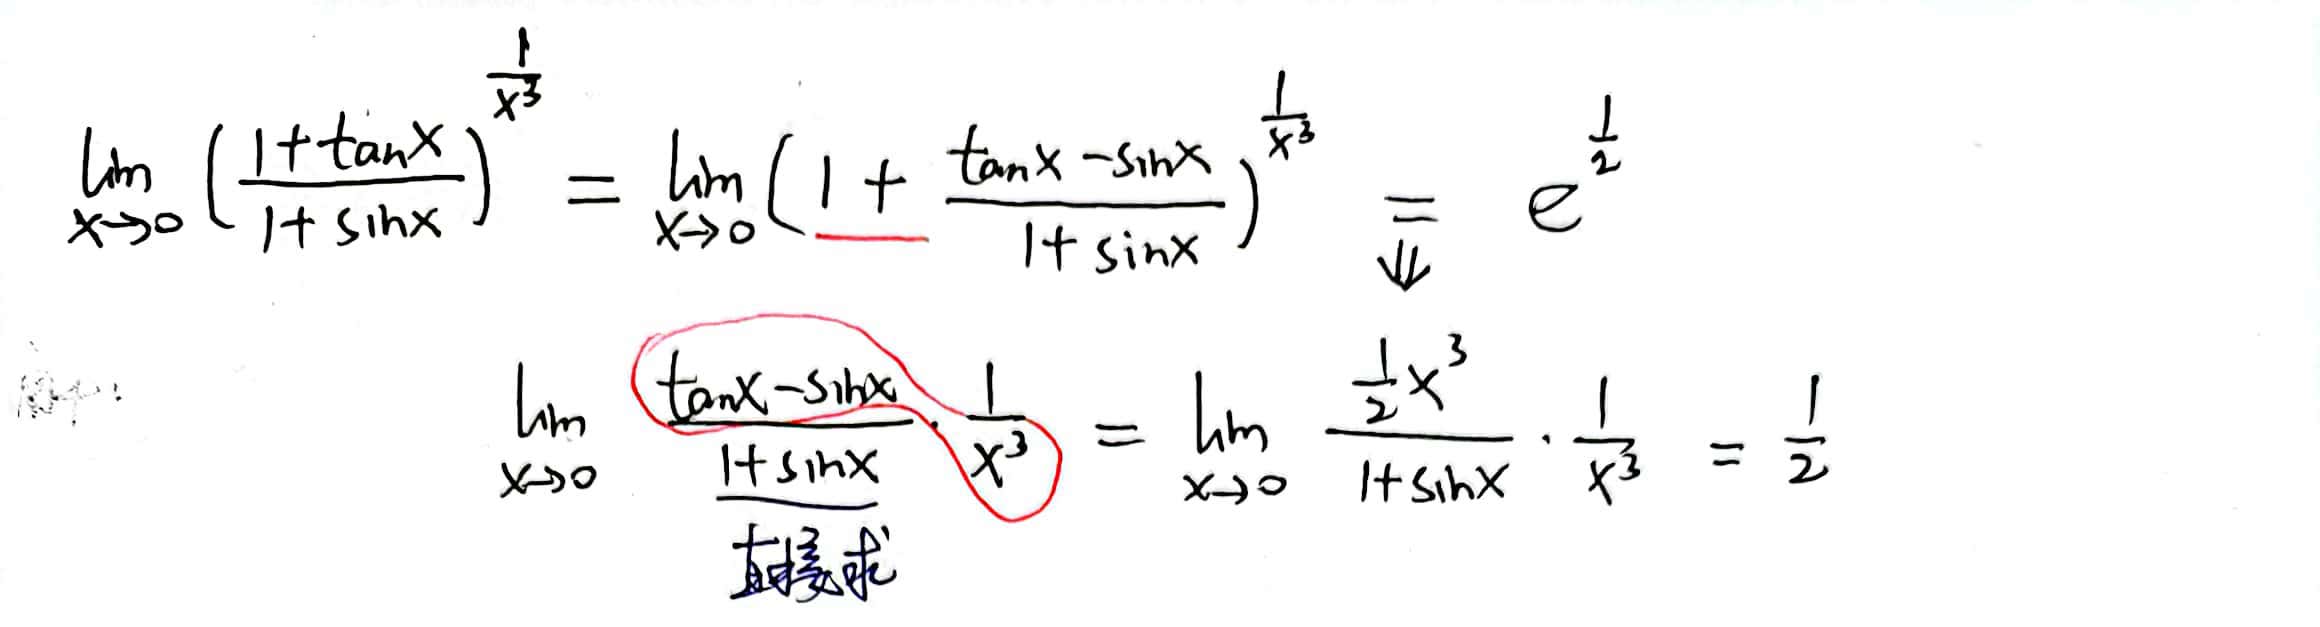 lim x→0 ((1+tanx)/(1+sinx))^(1/x³) = lim x→0 (1 + (tanx-sinx)/(1+sinx))^(1/x³) = e^(1/2)
⇓
lim x→0 (tanx-sinx)/(1+sinx) · 1/x³ = lim x→0 (½x³)/(1+sinx) · 1/x³ = 1/2
直接求